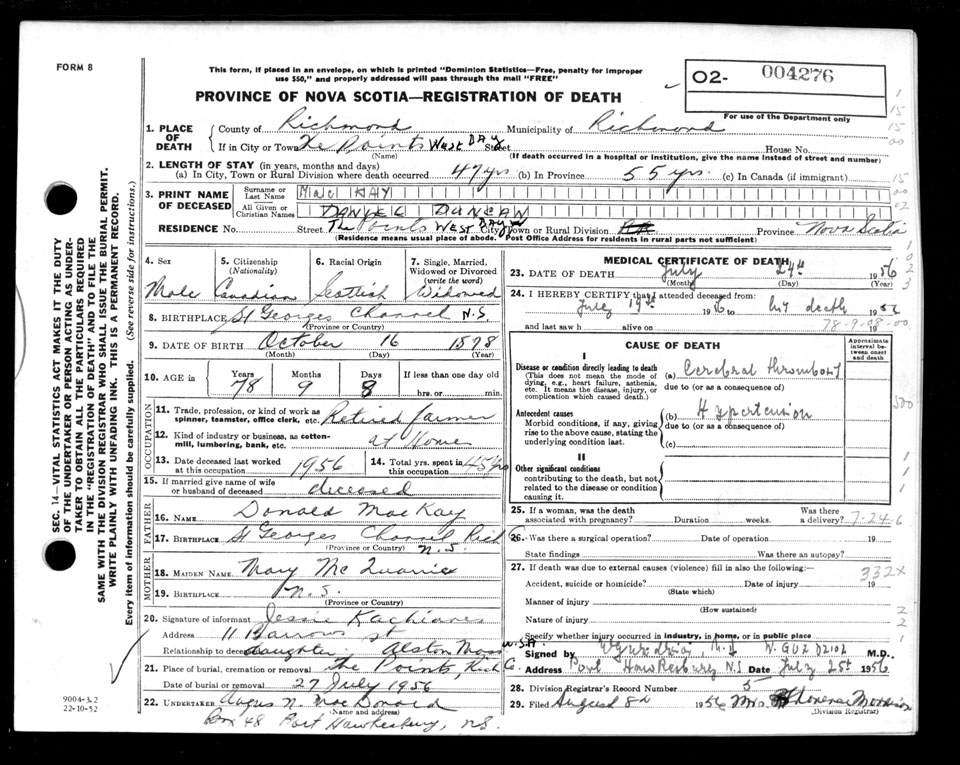 FORM 8
This form, if placed in an envelope, on which is printed "Dominion Statistics—Free, penalty for improper
use $50," and properly addressed will pass through the mail "FREE"
02- 004276
For use of the Department only
PROVINCE OF NOVA SCOTIA—REGISTRATION OF DEATH
1. PLACE OF DEATH
County of Richmond Municipality of Richmond
If in City or Town The Points West Bay Street House No.
(Name) (If death occurred in a hospital or institution, give the name instead of street and number)
2. LENGTH OF STAY (in years, months and days)
(a) In City, Town or Rural Division where death occurred 47 yrs. (b) In Province 55 yrs. (c) In Canada (if immigrant)
3. PRINT NAME OF DECEASED
Surname or Last Name MacKAY
All Given or Christian Names DANIEL DUNCAN
RESIDENCE No. Street The Points WEST BAY City, Town or Rural Division Province Nova Scotia
(Residence means usual place of abode. Post Office Address for residents in rural parts not sufficient)
4. Sex Male
5. Citizenship (Nationality) Canadian
6. Racial Origin Scottish
7. Single, Married, Widowed or Divorced (write the word) Widowed
8. BIRTHPLACE St Georges Channel N.S.
(Province or Country)
9. DATE OF BIRTH October 16 1878
(Month) (Day) (Year)
10. AGE in Years 78 Months 9 Days 8 If less than one day old
hrs. or min.
OCCUPATION
11. Trade, profession, or kind of work as
spinner, teamster, office clerk, etc. Retired farmer
12. Kind of industry or business, as cotton-
mill, lumbering, bank, etc. at Home
13. Date deceased last worked
at this occupation 1956
14. Total yrs. spent in
this occupation 45 yrs
15. If married give name of wife
or husband of deceased deceased
FATHER
16. NAME Donald MacKay
17. BIRTHPLACE St Georges Channel Rich Co
(Province or Country) N.S.
MOTHER
18. MAIDEN NAME Mary McQuarrie
19. BIRTHPLACE N.S.
(Province or Country)
20. Signature of informant Jessie
Address 11 Barrows St
Relationship to deceased daughter Alston Mass U.S.A
21. Place of burial, cremation or removal The Points, Rich Co.
Date of burial or removal 27 July 1956
22. UNDERTAKER Angus N. MacDonald
(Name and address)
Box 48 Port Hawkesbury, N.S.
MEDICAL CERTIFICATE OF DEATH
23. DATE OF DEATH July 24th 1956
(Month) (Day) (Year)
24. I HEREBY CERTIFY that I attended deceased from:
July 19th 1956 to his death 1956
and last saw h alive on 19
78-9-08-00
CAUSE OF DEATH
Approximate interval between onset and death
I
Disease or condition directly leading to death
(This does not mean the mode of
dying, e.g., heart failure, asthenia,
etc. It means the disease, injury, or
complication which caused death.)
(a) Cerebral thrombosis
due to (or as a consequence of)
Antecedent causes
Morbid conditions, if any, giving
rise to the above cause, stating the
underlying condition last.
(b) Hypertension
due to (or as a consequence of)
(c)
II
Other significant conditions
contributing to the death, but not
related to the disease or condition
causing it.
25. If a woman, was the death
associated with pregnancy? Duration weeks. Was there
a delivery? 7-24-6
26. Was there a surgical operation? Date of operation 19
State findings Was there an autopsy?
27. If death was due to external causes (violence) fill in also the following:—
332x
Accident, suicide or homicide? Date of injury 19
(State which)
Manner of injury
(How sustained)
Nature of injury
Specify whether injury occurred in industry, in home, or in public place
Signed by M.D.
Address Port Hawkesbury N.S Date July 25th 1956
28. Division Registrar's Record Number 5
29. Filed August 8th 1956 Mrs. Florence Morrison
(Division Registrar)
SEC. 14—VITAL STATISTICS ACT MAKES IT THE DUTY
OF THE UNDERTAKER OR PERSON ACTING AS UNDER-
TAKER TO OBTAIN ALL THE PARTICULARS REQUIRED
IN THE "REGISTRATION OF DEATH" AND TO FILE THE
SAME WITH THE DIVISION REGISTRAR WHO SHALL ISSUE THE BURIAL PERMIT.
WRITE PLAINLY WITH UNFADING INK. THIS IS A PERMANENT RECORD.
Every item of information should be carefully supplied. (See reverse side for instructions.)
9004-3.2
22-10-52